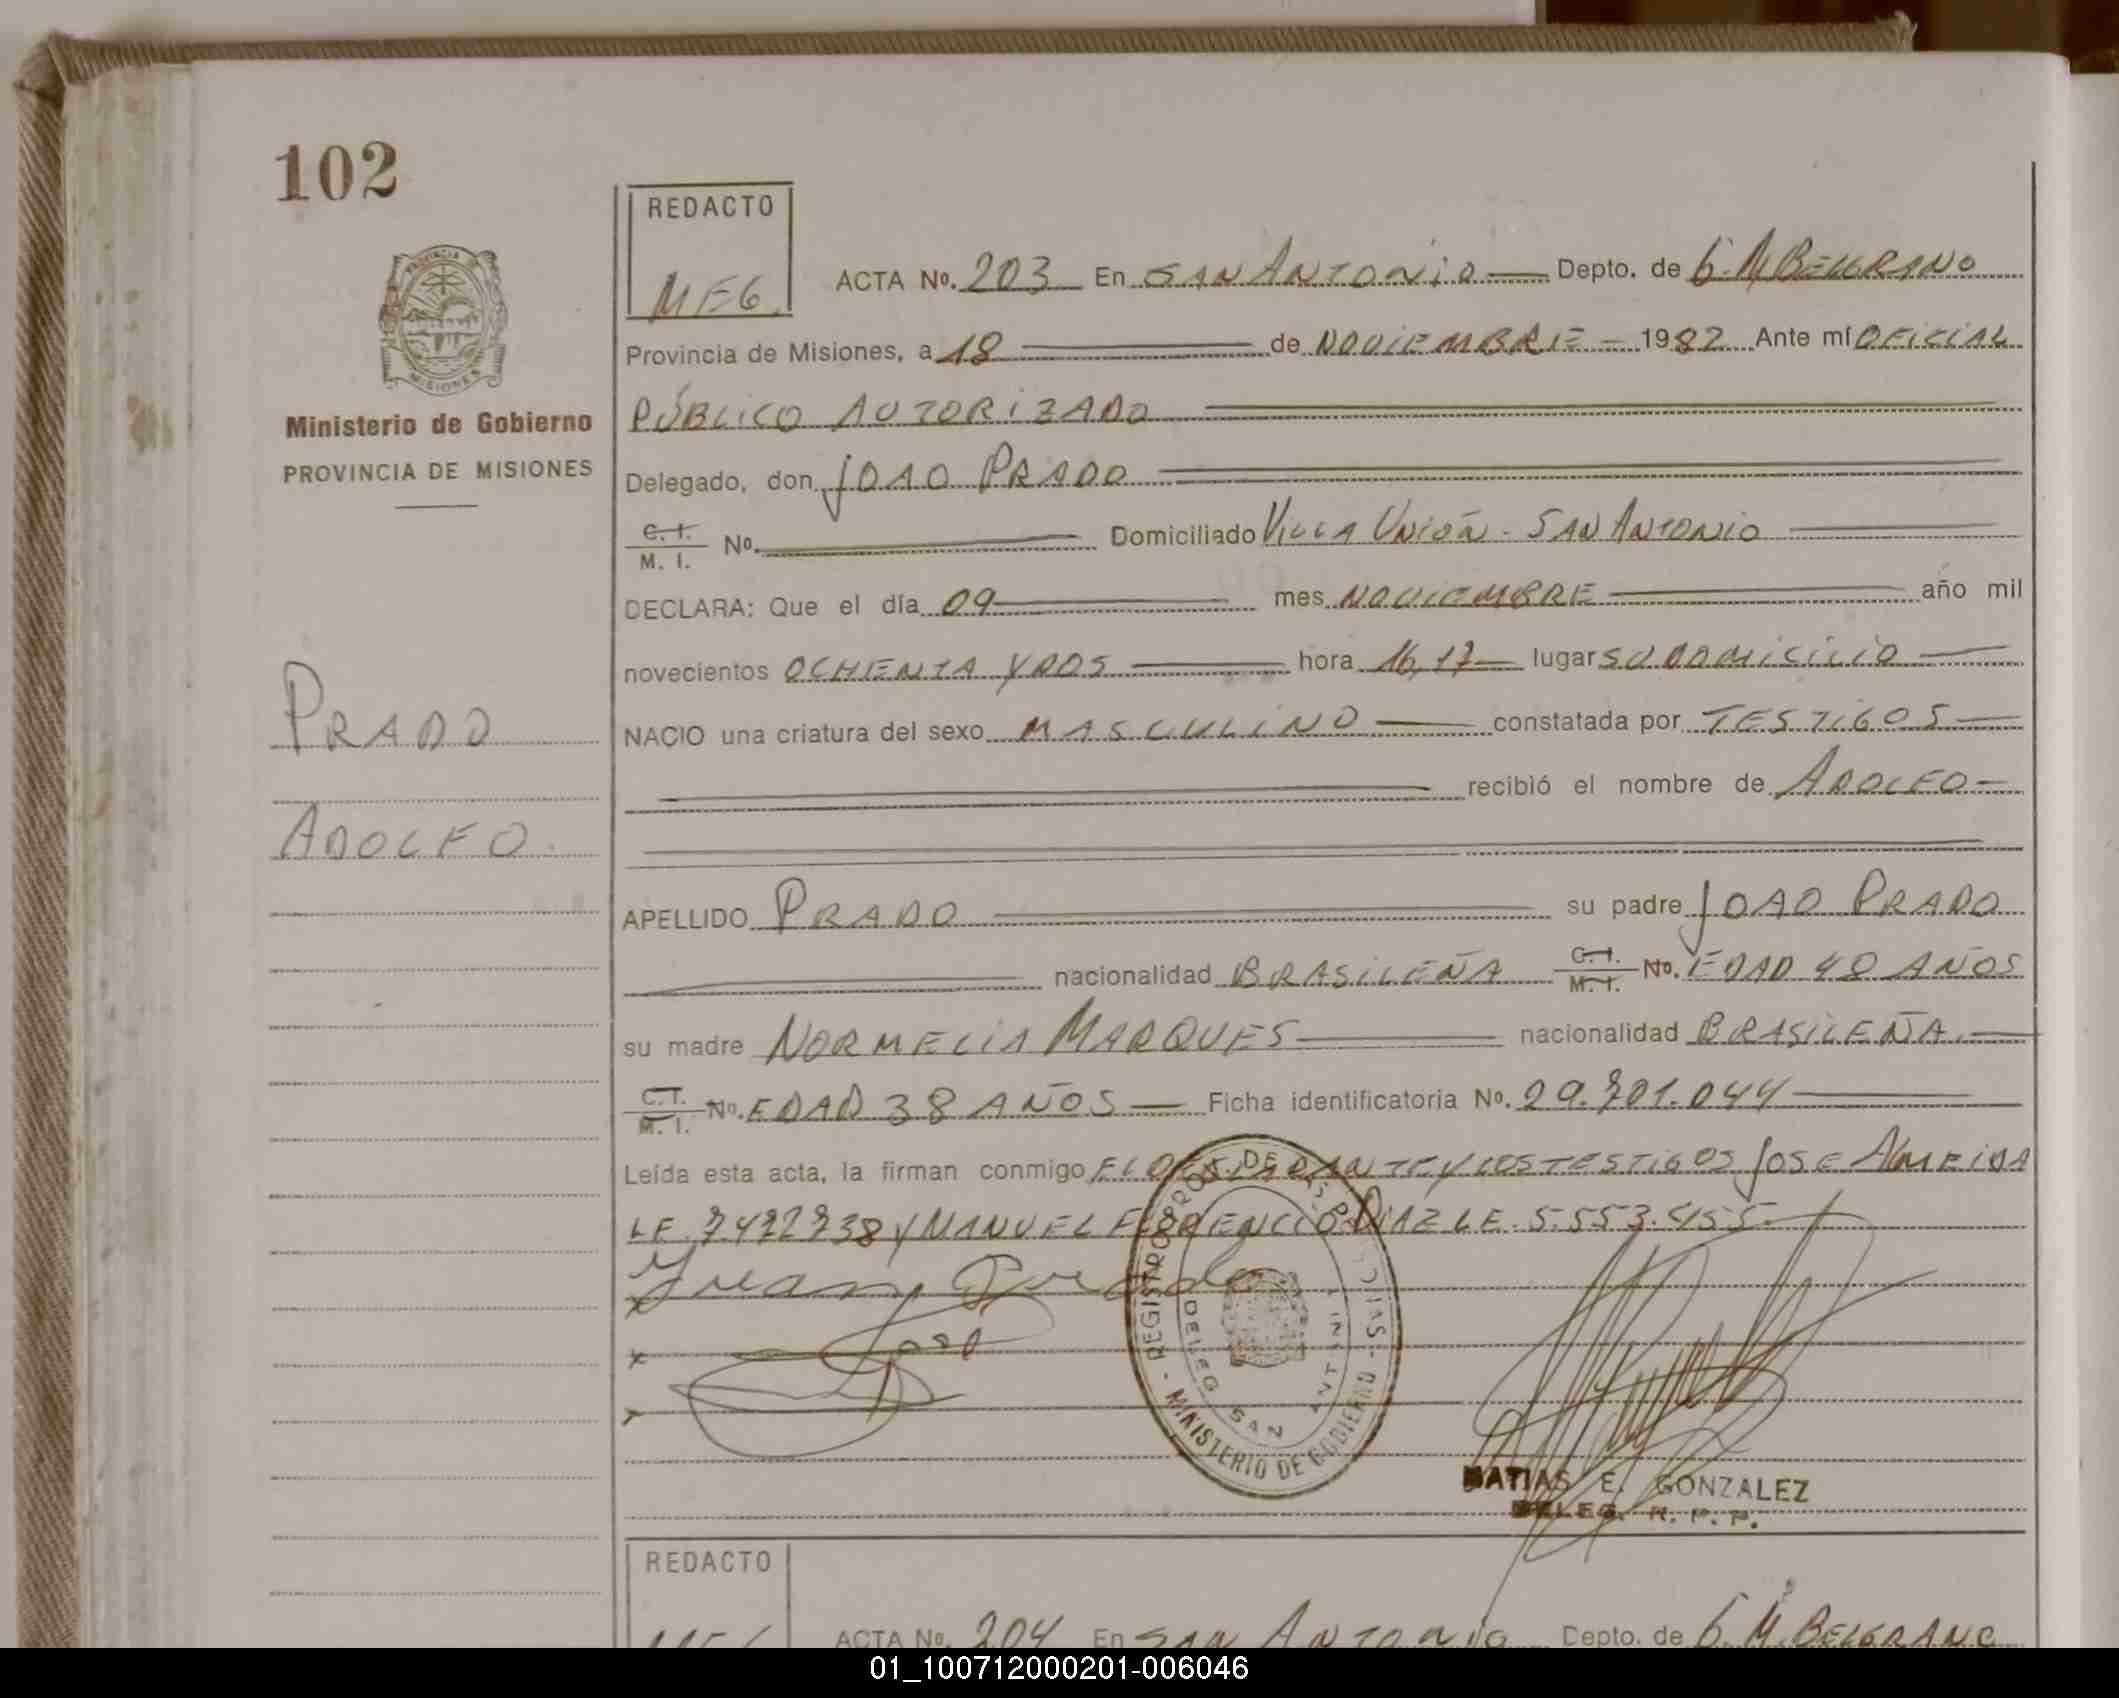 102
PROVINCIA DE
MISIONES
Ministerio de Gobierno
PROVINCIA DE MISIONES
PRADO
ADOLFO.
REDACTO
MEG.
ACTA No. 203 En SAN ANTONIO Depto. de G. M. BELGRANO
Provincia de Misiones, a 18 de NOVIEMBRE 1982 Ante mí OFICIAL
PÚBLICO AUTORIZADO
Delegado, don JOAO PRADO
C. I.
M. I. No. Domiciliado VILLA UNIÓN - SAN ANTONIO
DECLARA: Que el día 09 mes NOVIEMBRE año mil
novecientos OCHENTA Y DOS hora 16,17 lugar SU DOMICILIO
NACIO una criatura del sexo MASCULINO constatada por TESTIGOS
recibió el nombre de ADOLFO
APELLIDO PRADO su padre JOAO PRADO
nacionalidad BRASILEÑA C. I. M. I. No. EDAD 48 AÑOS
su madre NORMELIA MARQUES nacionalidad BRASILEÑA
C. I. M. I. No. EDAD 38 AÑOS Ficha identificatoria No. 29.701.044
Leída esta acta, la firman conmigo EL DECLARANTE Y LOS TESTIGOS JOSE ALMEIDA
LE. 7.472738 Y MANUEL FLORENCIO DIAZ LE. 5.553.455
x
x
REGISTRO DE LAS PERSONAS - MINISTERIO DE GOBIERNO -
DELEG SAN ANTONIO
MATIAS E. GONZALEZ
DELEG. R. P. P.
REDACTO
ACTA No. 204 En SAN ANTONIO Depto. de G. M. BELGRANO
01_100712000201-006046